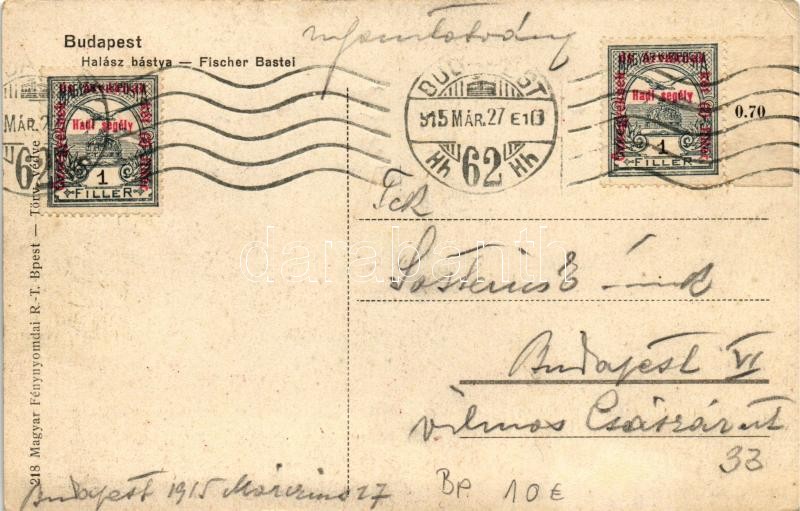 Budapest
Halász bástya — Fischer Bastei
nyomtatvány
BUDAPEST
915 MÁR. 27 E10
62
Hadi segély
1
FILLER
MÁR. 27
62
Hadi segély
1
FILLER
0.70
218 Magyar Fénynyomdai R.-T. Bpest — Törv. védve
Budapest VI
Vilmos Császár út
33
Budapest 1915 Március 27
Bp 10 €
darabanth